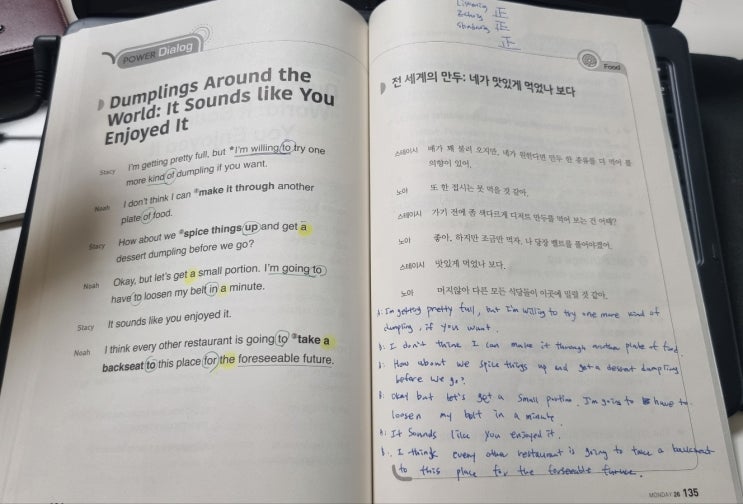 POWER Dialog
Dumplings Around the
World: It Sounds like You
Enjoyed It
Stacy I'm getting pretty full, but *I'm willing to try one
more kind of dumpling if you want.
Noah I don't think I can *make it through another
plate of food.
Stacy How about we *spice things up and get a
dessert dumpling before we go?
Noah Okay, but let's get a small portion. I'm going to
have to loosen my belt in a minute.
Stacy It sounds like you enjoyed it.
Noah I think every other restaurant is going to *take a
backseat to this place for the foreseeable future.
Listening 正
正
正
Food
전 세계의 만두: 네가 맛있게 먹었나 보다
스테이시 배가 꽤 불러 오지만, 네가 원한다면 만두 한 종류를 더 먹어 볼
의향이 있어.
노아 또 한 접시는 못 먹을 것 같아.
스테이시 가기 전에 좀 색다르게 디저트 만두를 먹어 보는 건 어때?
노아 좋아, 하지만 조금만 먹자. 나 당장 벨트를 풀어야겠어.
스테이시 맛있게 먹었나 보다.
노아 머지않아 다른 모든 식당들이 이곳에 밀릴 것 같아.
A: I'm getting pretty full, but I'm willing to try one more kind of
dumpling, if you want.
B: I don't think I can make it through another plate of food.
A: How about we spice things up and get a dessert dumpling
before we go?
B: Okay but let's get a small portion. I'm going to have to
loosen my belt in a minute.
A: It sounds like you enjoyed it.
B: I think every other restaurant is going to take a backseat
to this place for the foreseeable future.
MONDAY 26 135